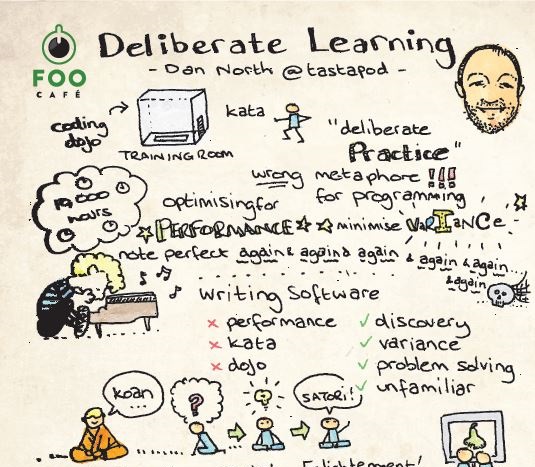 FOO
CAFÉ
Deliberate Learning
- Dan North @tastapod -
coding
dojo
TRAINING ROOM
kata
"deliberate
Practice"
wrong metaphore !!!
for programming
10 000
hours
optimising for
PERFORMANCE minimise VARIaNCe
note perfect again & again & again & again & again...
& again
Writing Software
× performance
× kata
× dojo
✓ discovery
✓ variance
✓ problem solving
✓ unfamiliar
koan
...
?
?
SATORI!
Enlightenment!